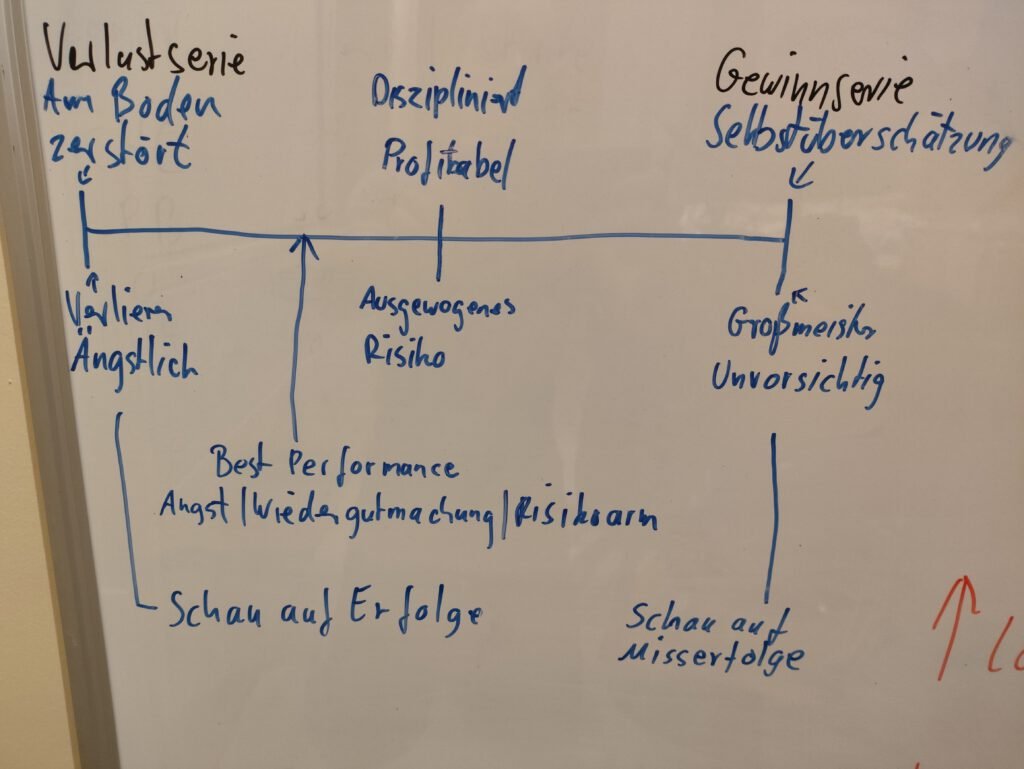 Verlustserie
Am Boden
zerstört
Diszipliniert
Profitabel
Gewinnserie
Selbstüberschätzung
Verlieren
Ängstlich
Ausgewogenes
Risiko
Großmeister
Unvorsichtig
Best Performance
Angst/Wiedergutmachung/Risikoarm
Schau auf Erfolge
Schau auf
Misserfolge